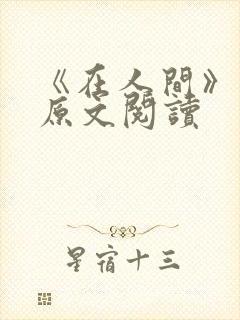 《在人間》
原文閱讀
星宿十三